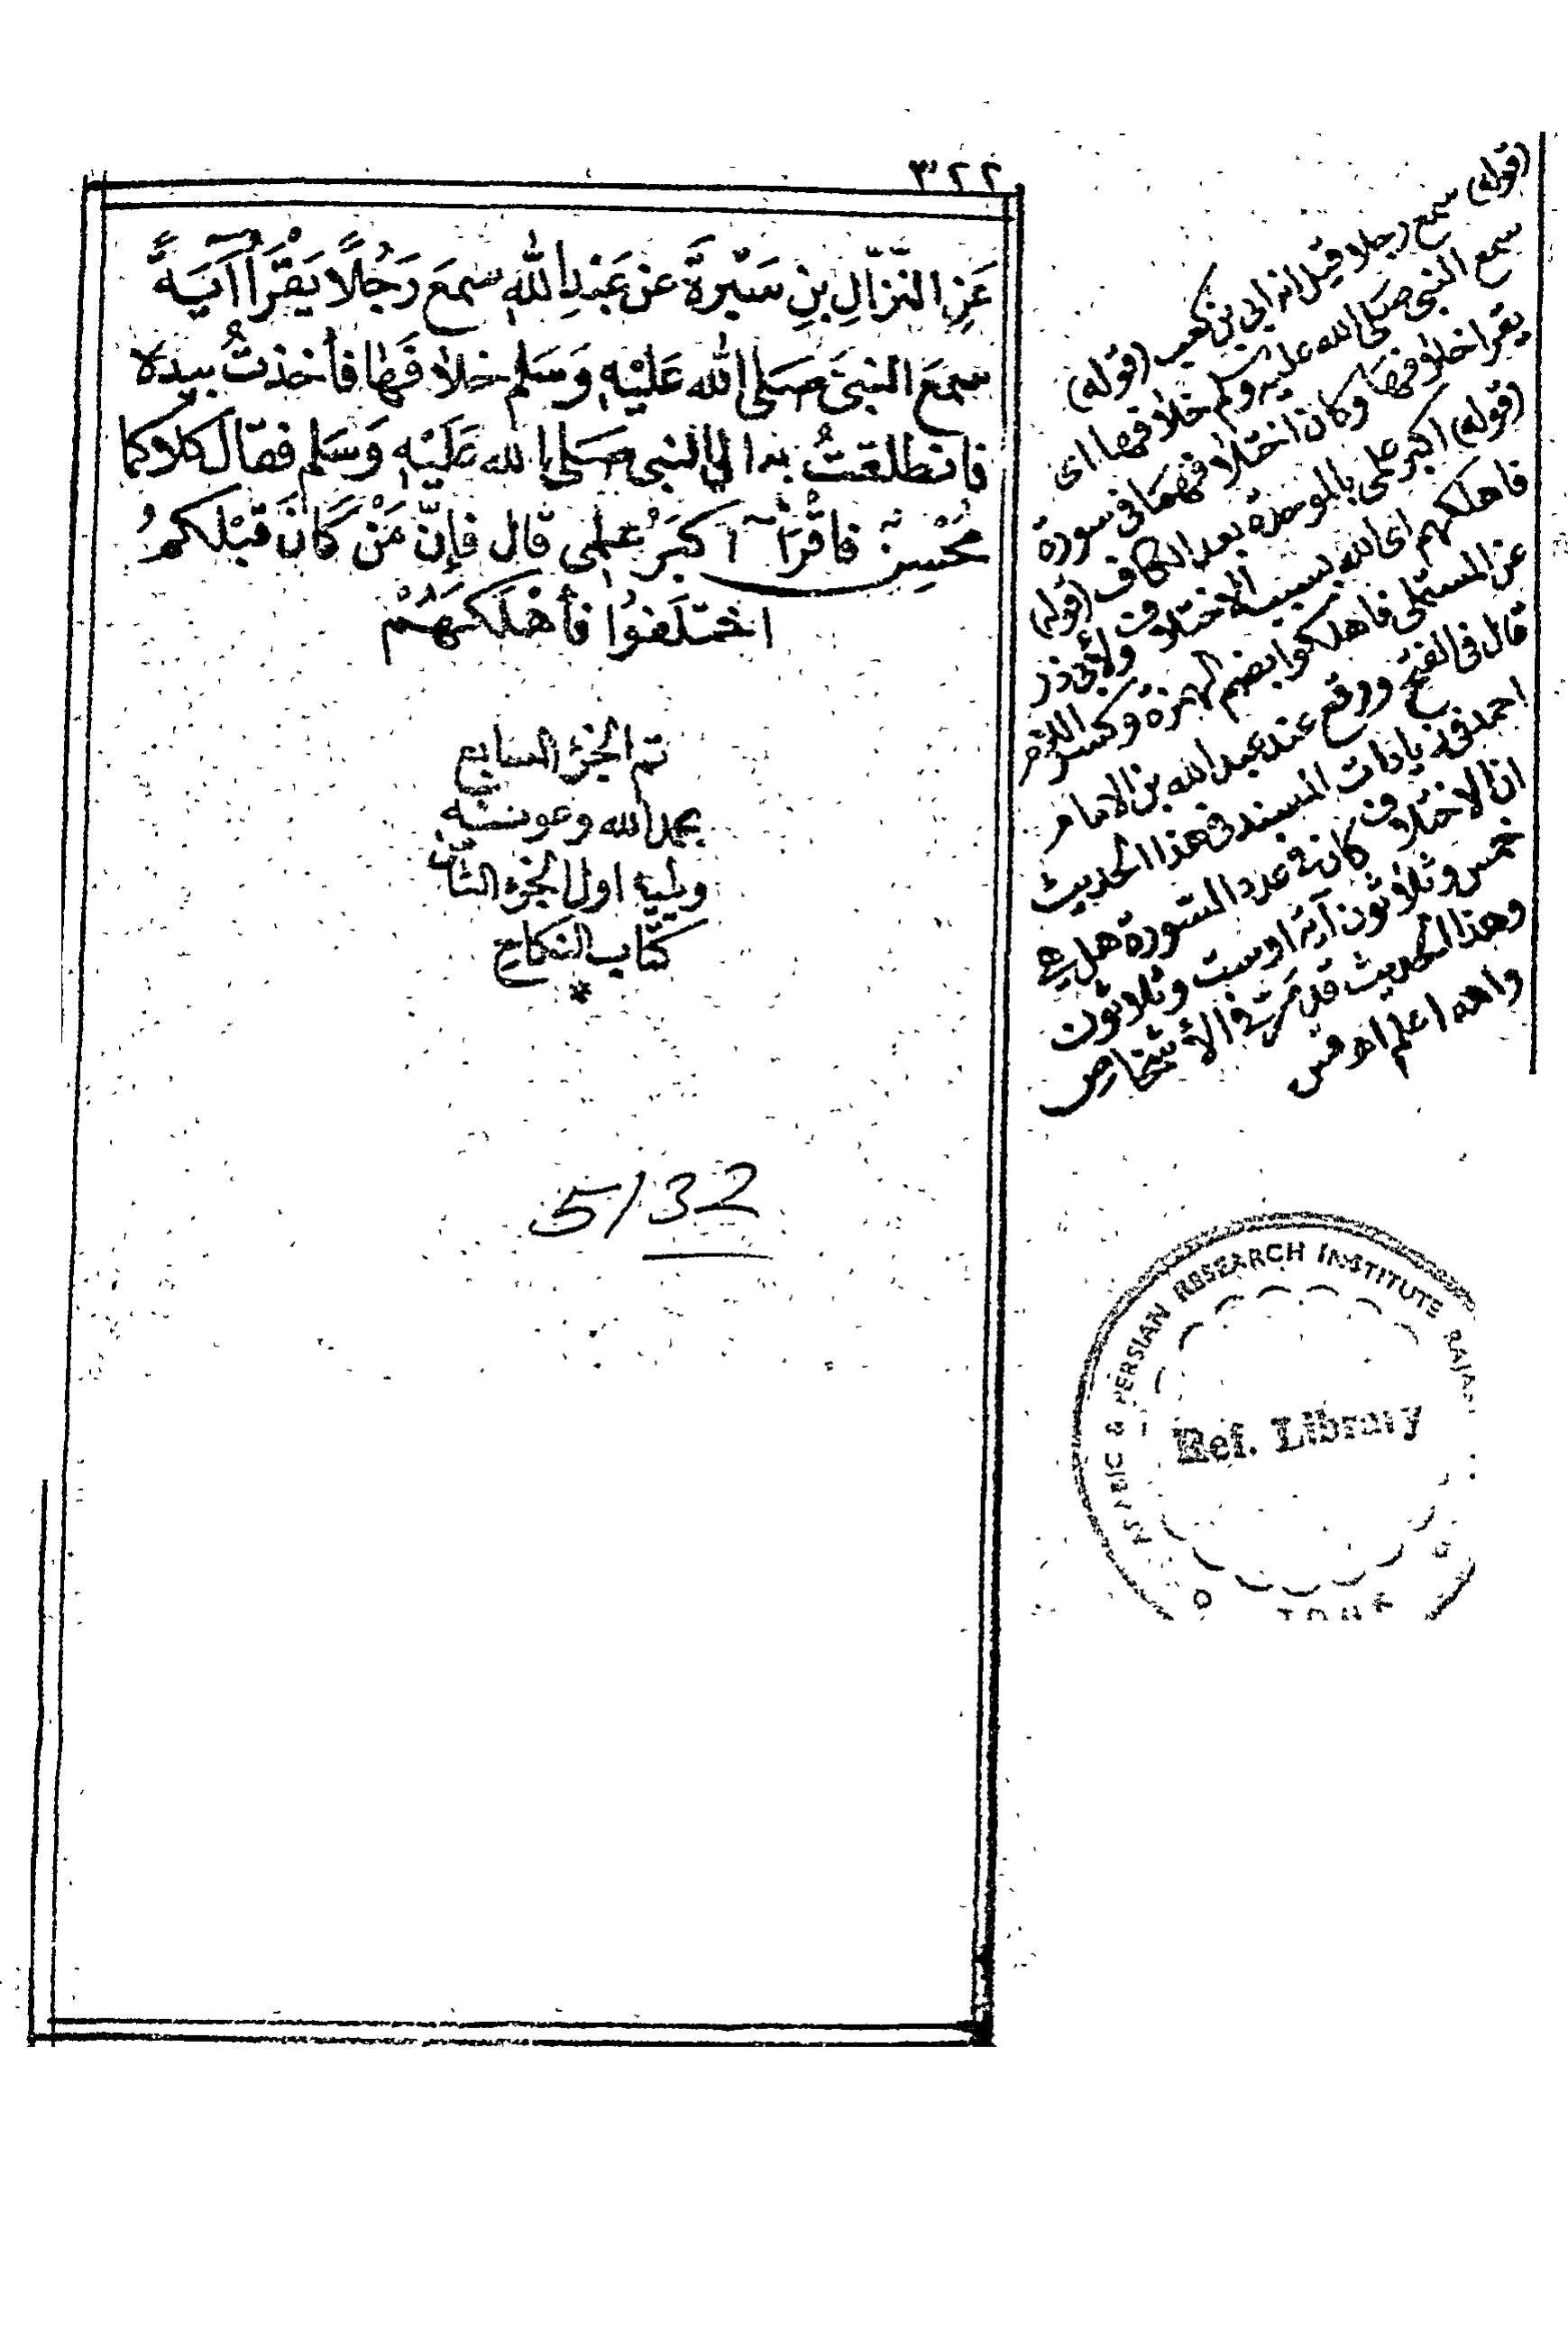 ٣٢٢
عَنِ النَّزَّالِ بنِ سَبْرةَ عن عَبْدِ اللهِ سمعَ رَجُلًا يَقْرَأُ آيَةً
سمعَ النبىَّ صَلى الله عَلَيْهِ وَسَلم خلافَها فأخذتُ بيده
فانطلقتُ به الى النبى صَلى الله عَلَيْهِ وَسَلم فقال كلاكما
مُحْسِنٌ فاقْرَآ اكبَرُ عِلمى قال فإنَّ مَنْ كَانَ قَبْلكمُ
اختَلَفوُا فأهْلَكَهُمْ
تم الجزؤ السابع
بحمد الله وعونه
ويليه اول الجزء الثامن
كتاب النكاح
*
5/32
(قوله) سمع رجلا قيل انه ابى بن كعب (قوله)
سمع النبى صلى الله عليه وسلم خلافها اى
يقرا خلافها وكان اختلافهما فى سورة
(قوله) اكبر علمى بالموحدة بعد الكاف (قوله)
فاهلكهم اى الله بسبب الاختلاف ولأبى ذر
عن المستملى فاهلكوا بضم الهمزة وكسر اللام
قال فى الفتح ووقع عند عبد الله بن الامام
احمد فى زيادات المسند فى هذا الحديث
ان الاختلاف كان فى عدد السورة هل هى
خمس وثلاثون آية او ست وثلاثون
وهذا الحديث قد مر فى الأشخاص
والله اعلم اهـ قس
ARABIC & PERSIAN RESEARCH INSTITUTE
Ref. Library
TONK